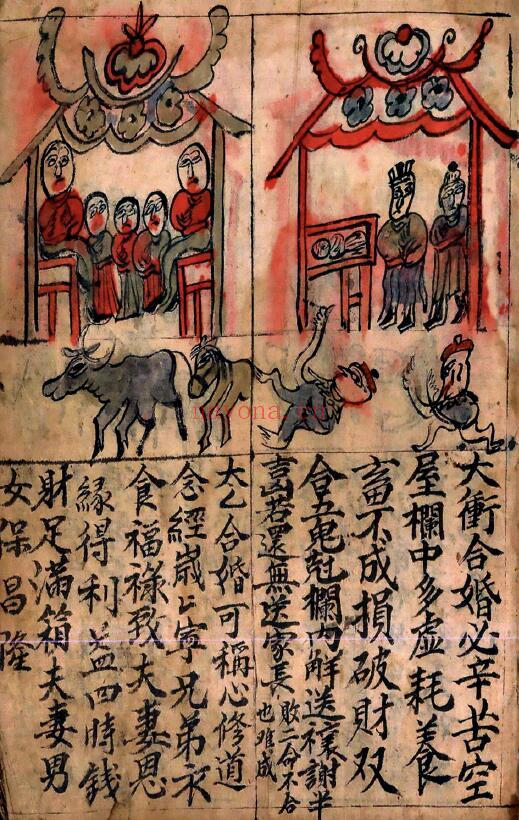 大衝合婚必辛苦空
屋欄中多虚耗養
畜不成損破財双
合五鬼尅欄内解送禳謝半
喜若還無送家長
敗二命不合
也难成
大乙合婚可稱心修道
念經歲々寧兄弟衣
食福禄致夫妻恩
緣得利益四時錢
財足滿箱夫妻男
女保昌隆